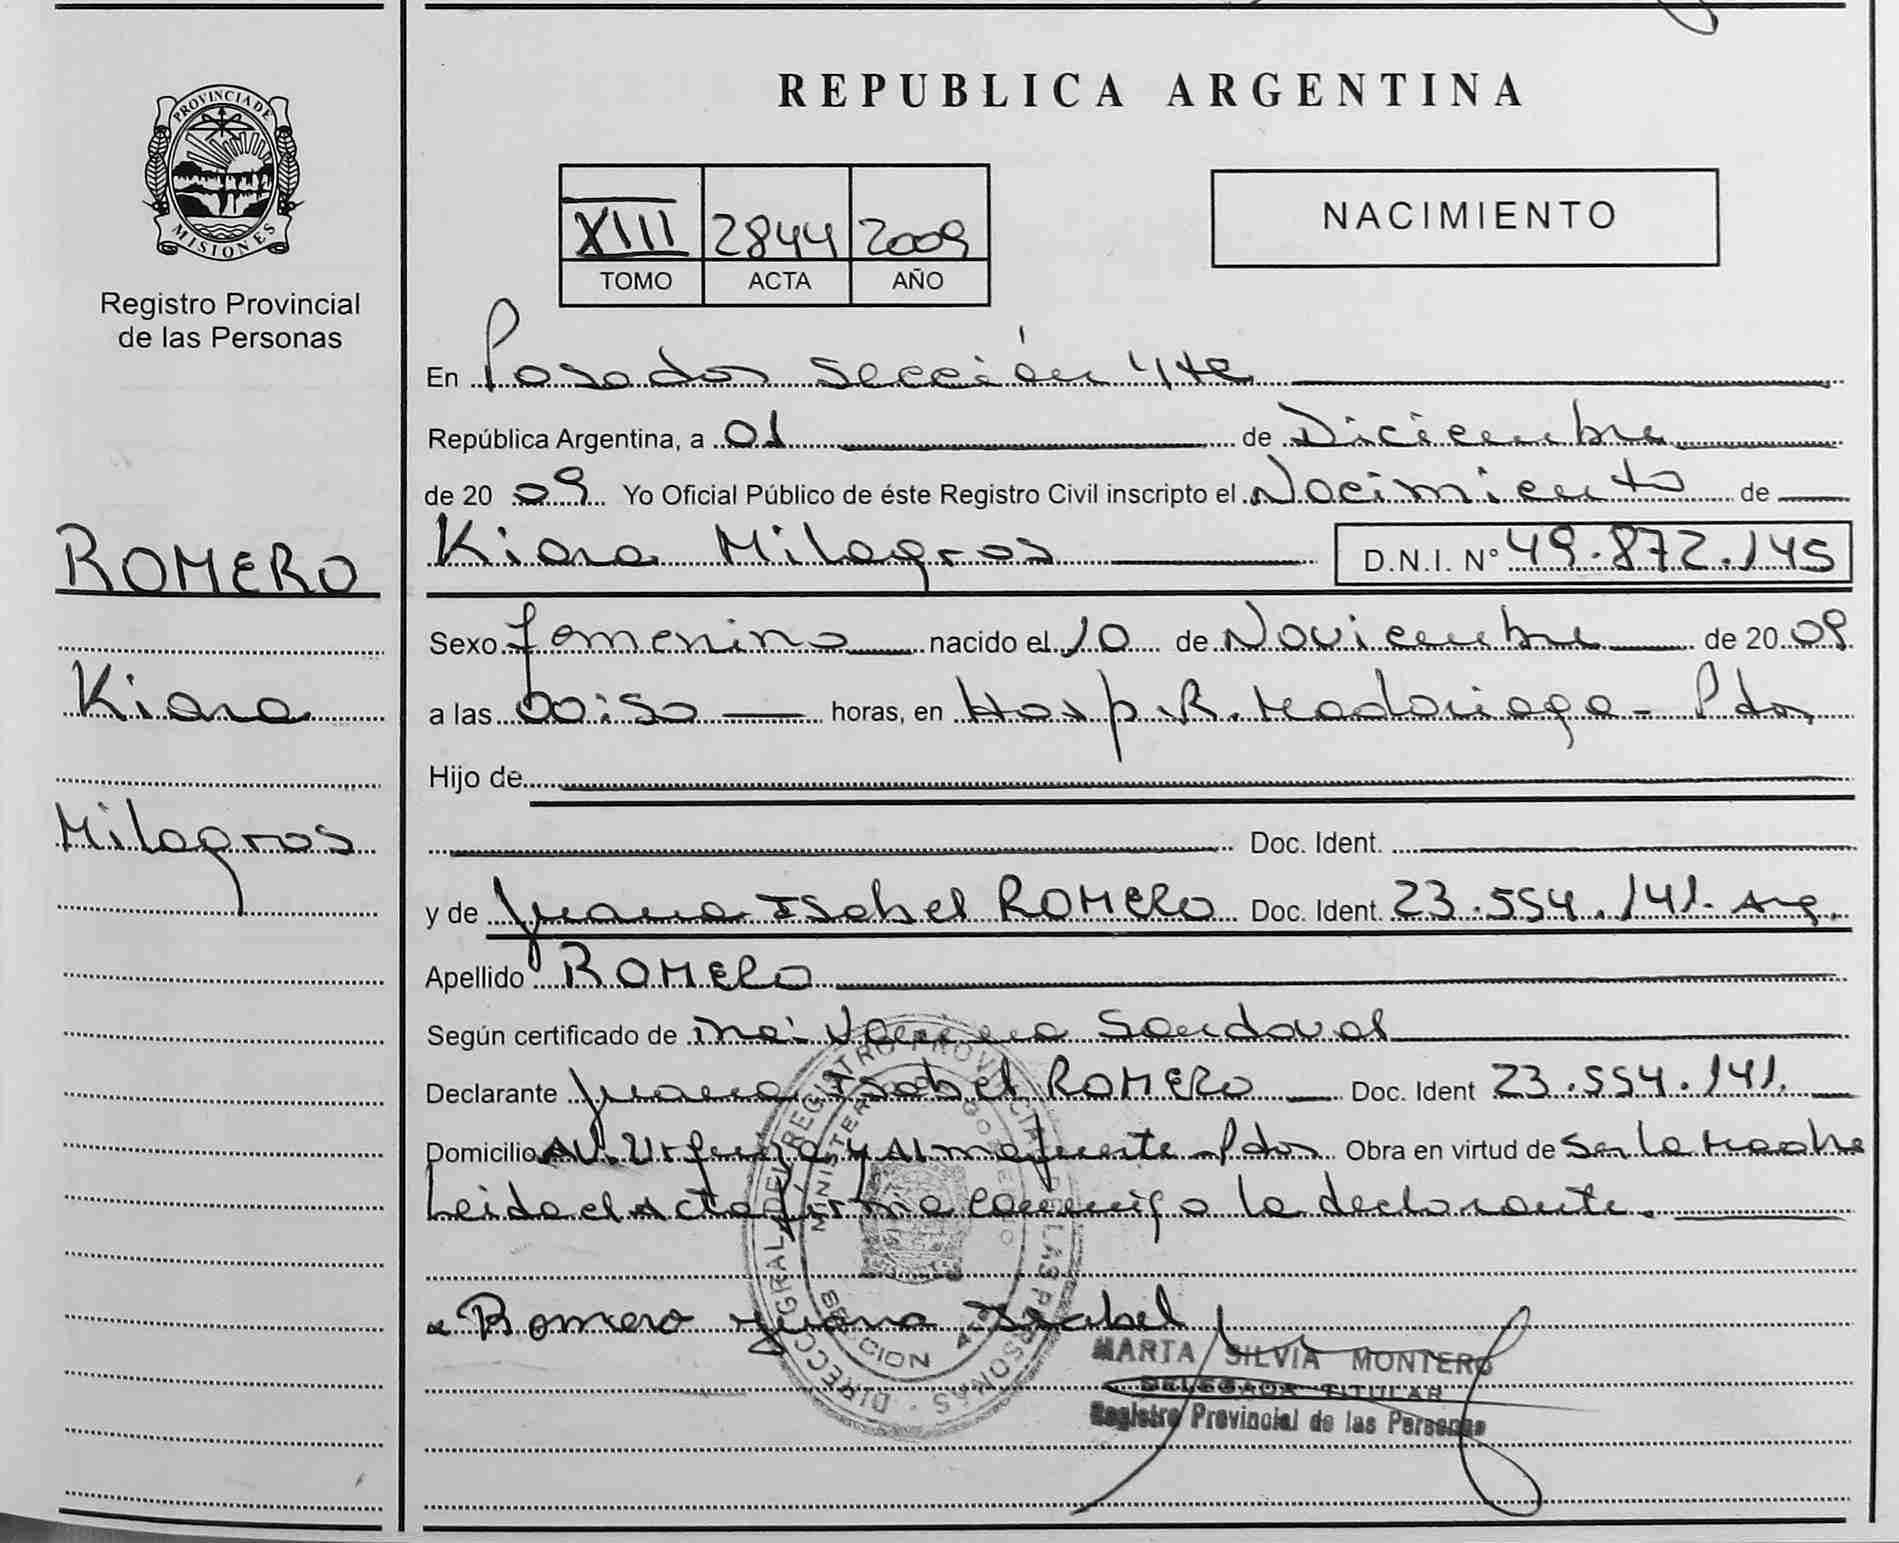 REPUBLICA ARGENTINA
PROVINCIA DE
MISIONES
Registro Provincial
de las Personas
XIII 2844 2009
TOMO ACTA AÑO
NACIMIENTO
En Posadas Sección 4ta
República Argentina, a 01 de Diciembre
de 20 09 Yo Oficial Público de éste Registro Civil inscripto el Nacimiento de
ROMERO
Kiara
Milagros
Kiara Milagros D.N.I. N° 49.872.145
Sexo femenino nacido el 10 de Noviembre de 20 09
a las 00:50 horas, en Hosp. R. Madariaga - Pdas
Hijo de
Doc. Ident.
y de Juana Isabel ROMERO Doc. Ident. 23.554.141. Arg.
Apellido ROMERO
Según certificado de Sandoval
Declarante Juana Isabel ROMERO Doc. Ident 23.554.141.
Domicilio AV. Urquiza y Almafuerte - Pdas Obra en virtud de Ser la Madre
Leida el Acta firma conmigo la declarante.
Romero Juana Isabel
MARTA SILVIA MONTERO
DELEGADA TITULAR
Registro Provincial de las Personas
DIRECC. GRAL. DEL REGISTRO PROVINCIAL DE LAS PERSONAS
MINISTERIO GOBIERNO
SECCION 4ta